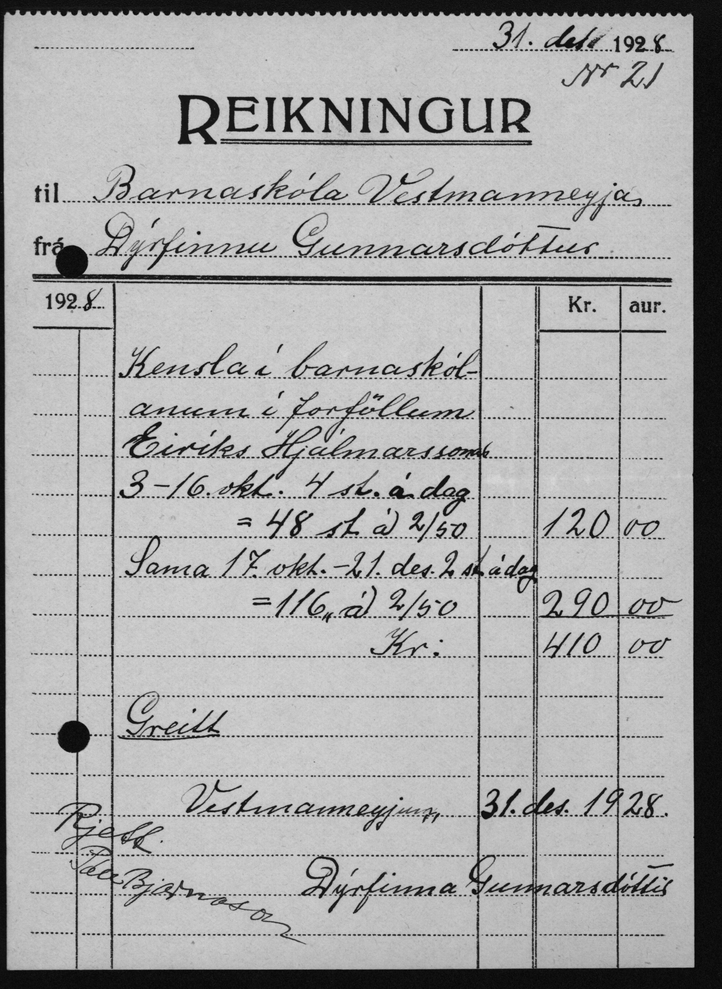 31. des. 1928
Nr 21
REIKNINGUR
til Barnaskóla Vestmanneyja
frá Dýrfinnu Gunnarsdóttur
1928 Kr. aur.
Kensla í barnaskól-
anum í forföllum
Eiríks Hjálmarssonar
3-16. okt. 4 st. á dag
= 48 st. á 2/50 120 00
Sama 17. okt. - 21. des. 2 st. á dag
= 116 „ á 2/50 290 00
Kr: 410 00
Greitt
Vestmannneyjum, 31. des. 1928.
Rjett.
Páll Bjarnason
Dýrfinna Gunnarsdóttir